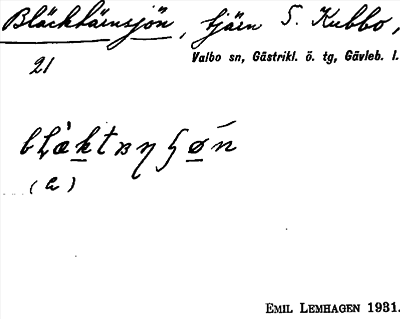 Bläcktärnsjön, tjärn S. Kubbo,
21 Valbo sn, Gästrikl. ö. tg, Gävleb. l.
(a)
EMIL LEMHAGEN 1931.